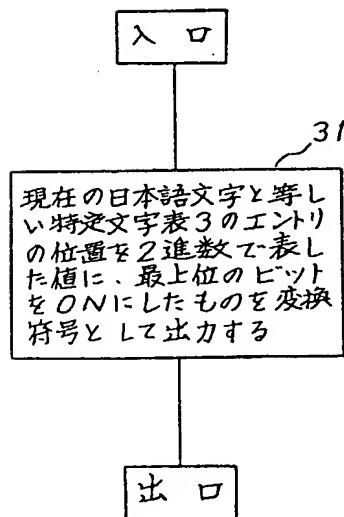 入 口
31
現在の日本語文字と等し
い特定文字表3のエントリ
の位置を2進数で表し
た値に、最上位のビット
をONにしたものを変換
符号として出力する
出 口